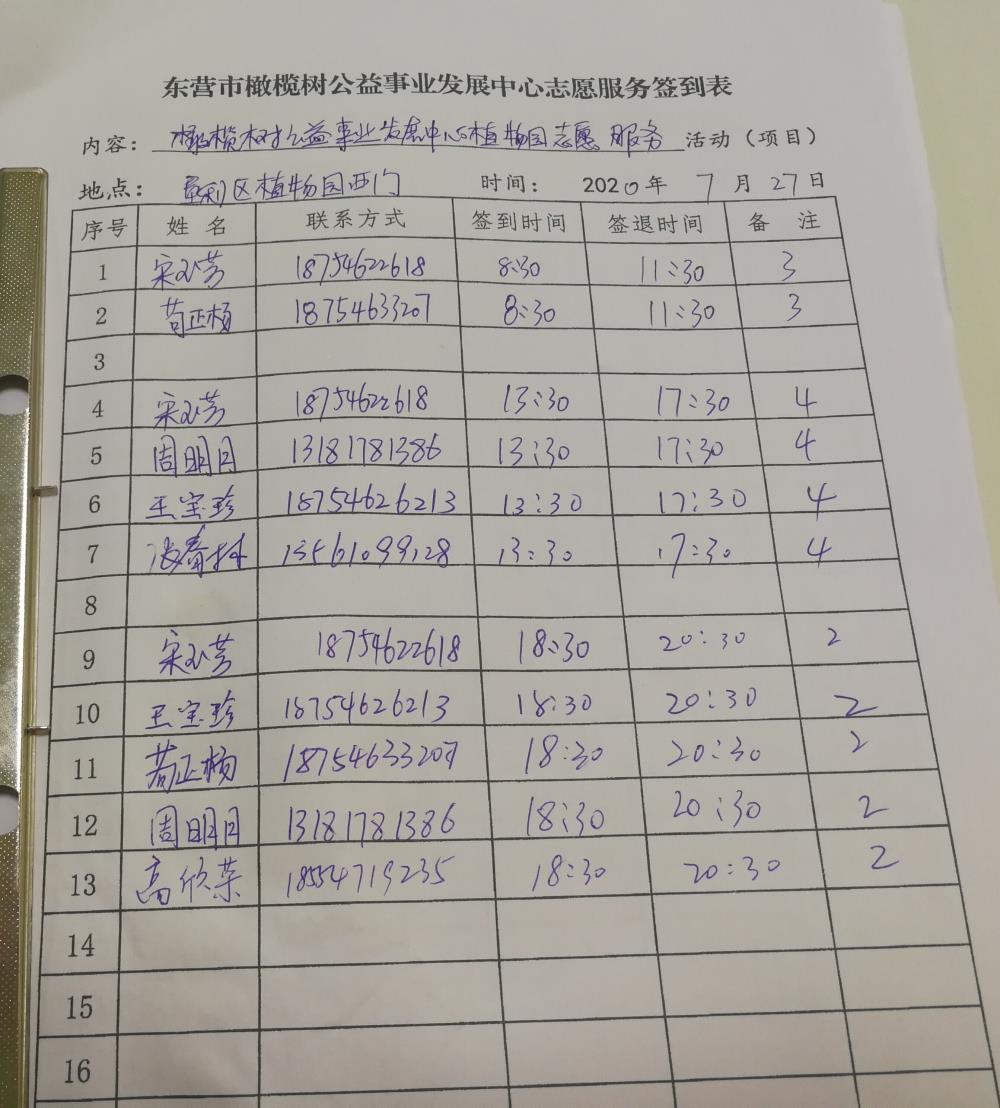 东营市橄榄树公益事业发展中心志愿服务签到表
内容：橄榄树公益事业发展中心植物园志愿服务活动（项目）
地点：垦利区植物园西门 时间：2020年7月27日
序号 姓名 联系方式 签到时间 签退时间 备注
1 宋小芳 18754622618 8:30 11:30 3
2 苟正杨 18754633207 8:30 11:30 3
3
4 宋小芳 18754622618 13:30 17:30 4
5 周明月 13181781386 13:30 17:30 4
6 王宝珍 18754626213 13:30 17:30 4
7 13561099128 13:30 17:30 4
8
9 宋小芳 18754622618 18:30 20:30 2
10 王宝珍 18754626213 18:30 20:30 2
11 苟正杨 18754633207 18:30 20:30 2
12 周明月 13181781386 18:30 20:30 2
13 高欣荣 18554719235 18:30 20:30 2
14
15
16